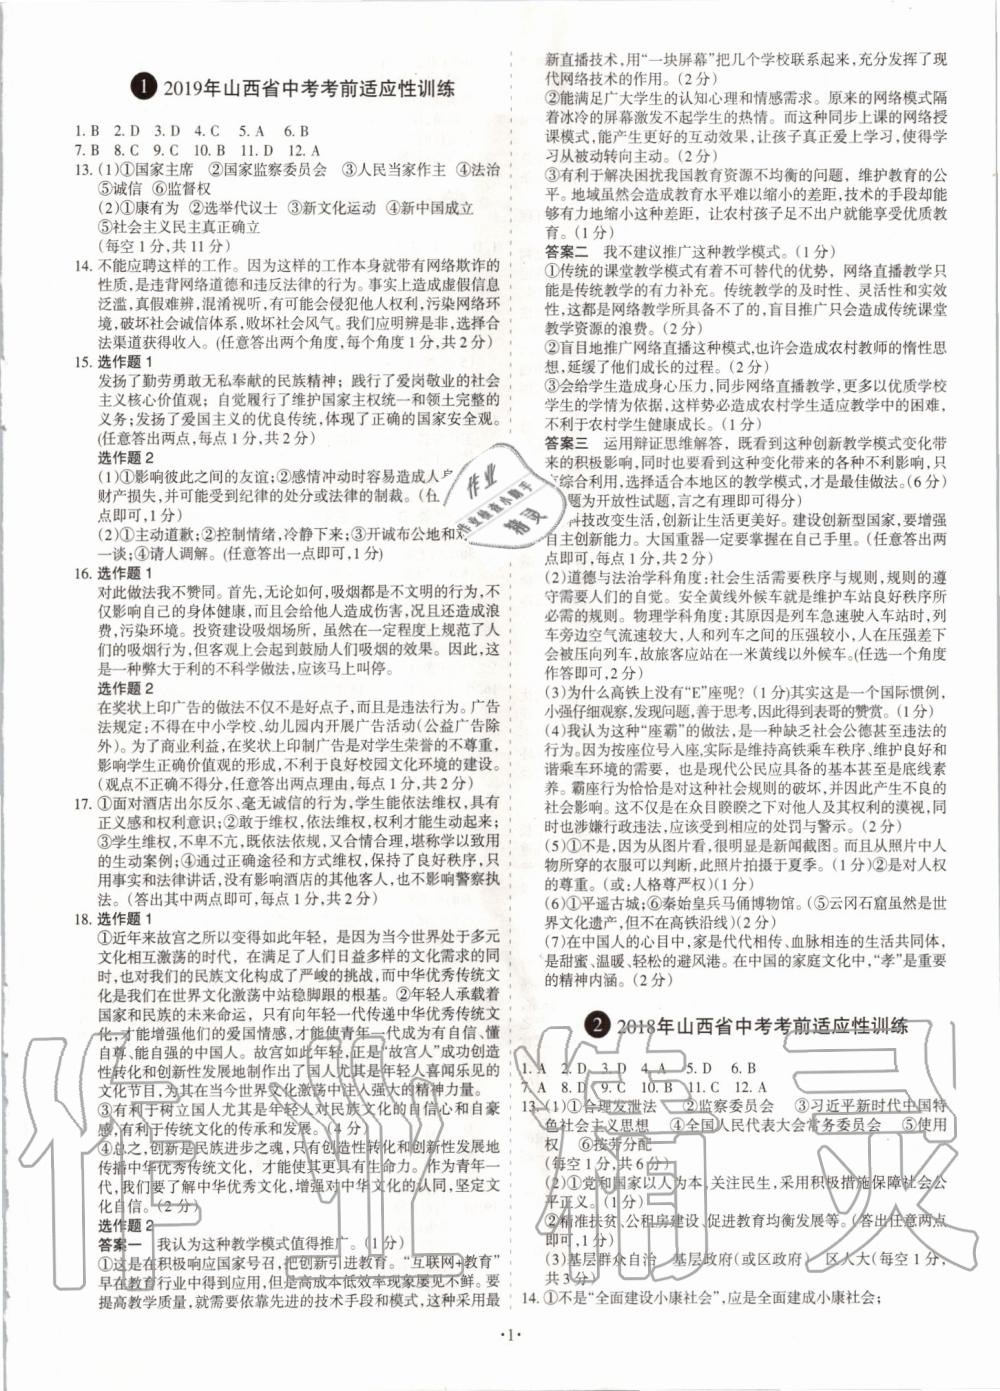 1 2019年山西省中考考前适应性训练
1. B 2. D 3. D 4. C 5. A 6. B
7. B 8. C 9. C 10. B 11. D 12. A
13. (1)①国家主席 ②国家监察委员会 ③人民当家作主 ④法治
⑤诚信 ⑥监督权
(2)①康有为 ②选举代议士 ③新文化运动 ④新中国成立
⑤社会主义民主真正确立
(每空1分,共11分)
14. 不能应聘这样的工作。因为这样的工作本身就带有网络欺诈的
性质,是违背网络道德和违反法律的行为。事实上造成虚假信息
泛滥,真假难辨,混淆视听,有可能会侵犯他人权利,污染网络环
境,破坏社会诚信体系,败坏社会风气。我们应明辨是非,选择合
法渠道获得收入。(任意答出两个角度,每个角度1分,共2分)
15. 选作题1
发扬了勤劳勇敢无私奉献的民族精神；践行了爱岗敬业的社会
主义核心价值观；自觉履行了维护国家主权统一和领土完整的
义务；发扬了爱国主义的优良传统,体现了正确的国家安全观。
(任意答出两点,每点1分,共2分)
选作题2
(1)①影响彼此之间的友谊；②感情冲动时容易造成人身
财产损失,并可能受到纪律的处分或法律的制裁。(任
点即可,1分)
(2)①主动道歉；②控制情绪,冷静下来；③开诚布公地和对
一谈；④请人调解。(任意答出一点即可,1分)
16. 选作题1
对此做法我不赞同。首先,无论如何,吸烟都是不文明的行为,不
仅影响自己的身体健康,而且还会给他人造成伤害,况且还造成浪
费,污染环境。投资建设吸烟场所,虽然在一定程度上规范了人
们的吸烟行为,但客观上会起到鼓励人们吸烟的效果。因此,这
是一种弊大于利的不科学做法,应该马上叫停。
选作题2
在奖状上印广告的做法不仅不是好点子,而且是违法行为。广告
法规定：不得在中小学校、幼儿园内开展广告活动(公益广告除
外)。为了商业利益,在奖状上印制广告是对学生荣誉的不尊重,影
响学生正确价值观的形成,不利于良好校园文化环境的建设。
(观点不正确不得分,任意答出两点理由,每点1分,共2分)
17. ①面对酒店出尔反尔、毫无诚信的行为,学生能依法维权,具有
正义感和权利意识；②敢于维权,依法维权,权利才能生动起来；
③学生维权,不卑不亢,既依法依规,又合情合理,堪称学以致用
的生动案例；④通过正确途径和方式维权,保持了良好秩序,只
用事实和法律讲话,没有影响酒店的其他客人,也不影响警察执
法。(答出其中两点即可,每点1分,共2分)
18. 选作题1
①近年来故宫之所以变得如此年轻,是因为当今世界处于多元
文化相互激荡的时代,在满足了人们日益多样的文化需求的同
时,也对我们的民族文化构成了严峻的挑战,而中华优秀传统文
化是我们在世界文化激荡中站稳脚跟的根基。②年轻人承载着
国家和民族的希望。只有向年轻一代传递中华优秀传统文
化,才能增强他们的爱国情感,才能使青年一代成为有自信、懂
自尊、能自强的中国人。故宫如此年轻,正是“故宫人”成功创造
性转化和创新性发展地制作出了国人尤其是年轻人喜闻乐见的
文化节目,为其发展壮大提供了强大的精神力量。
③有利于树立国人尤其是年轻人对民族文化的自信心和自豪
感,有利于传统文化的传承和发展。(4分)
④总之,创新是民族进步之魂,只有创造性转化和创新性发展地
传播中华优秀传统文化,才能更好地发挥其作用。作为青年一
代,我们要了解中华优秀文化,增强对中华文化的认同,坚定文
化自信。(2分)
选作题2
答案一 我认为这种教学模式值得推广。(1分)
①这是在积极响应国家号召,把创新引进教育。“互联网+教育”
早在教育行业中得到应用,但是高成本低效率现象屡见不鲜。要
提高教学质量,就需要依靠先进的技术手段和模式,这种采用最
新直播技术,用“一块屏幕”把几个学校联系起来,充分发挥了现
代网络技术的作用。(2分)
②能满足广大学生的认知心理和情感需求。原来的网络模式隔
着冰冷的屏幕激发不起学生的热情。而这种同步上课的网络授
课模式,能产生更好的互动效果,让孩子真正爱上学习,使得学习
从被动转向主动。(2分)
③有利于解决我国教育资源不均衡的问题,维护教育的公
平。地域虽然会造成教育水平难以缩小的差距,技术的手段却能
够有力地缩小这种差距,让农村孩子足不出户就能享受优质教
育。(1分)
答案二 我不建议推广这种教学模式。(1分)
①传统的课堂教学模式有着不可替代的优势,网络直播教学只
能是传统教学的有力补充。传统教学的及时性、灵活性和实效
性,这都是网络教学所具备不了的,盲目推广只会造成传统课堂
教学资源的浪费。(2分)
②盲目地推广网络直播这种模式,也许会造成农村教师的惰性思
想,延缓了他们成长的过程。(2分)
③会给学生造成身心压力,同步网络直播教学,更多以优质学校
学生的学情为依据,这样势必造成农村学生适应教学中的困难,
不利于农村学生健康成长。(1分)
答案三 运用辩证思维解答,既看到这种创新教学模式变化带
来的积极影响,同时也要看到这种变化带来的各种不利影响,只
有综合利用,选择适合本地区的教学模式,才是最佳做法。(6分)
题为开放性试题,言之有理即可得分)
科技改变生活,创新让生活更美好。建设创新型国家,要增强
自主创新能力。大国重器一定要掌握在自己手里。(任意答出两
点即可,2分)
(2)道德与法治学科角度：社会生活需要秩序与规则,规则的遵
守需要人们的自觉。安全黄线外候车就是维护车站良好秩序所
必需的规则。物理学科角度：其原因是列车急速驶入车站时,列
车旁边空气流速较大,人和列车之间的压强较小,人在压强差下
会被压向列车,故旅客应站在一米黄线以外候车。(任选一个角度
作答即可,2分)
(3)为什么高铁上没有“E”座呢？(1分)其实这是一个国际惯例,
小强仔细观察,发现问题,善于思考,因此得到表哥的赞赏。(1分)
(4)我认为这种“座霸”的做法,是一种缺乏社会公德甚至违法的
行为。因为按座位号入座,实际是维持高铁乘车秩序、维护良好和
谐乘车环境的需要,也是现代公民应具备的基本甚至是最低的素
养。霸座行为恰恰是对这种社会规则的破坏,并因此产生不良的
社会影响。这不仅是在众目睽睽之下对他人及其权利的漠视,同
时也涉嫌行政违法,应受到相应的处罚与警示。(2分)
(5)①不是,因为从图片看,很明显是新闻截图。而且从照片中人
物所穿的衣服可以判断,此照片拍摄于夏季。(1分)②是对人权
的尊重。(或：人格尊严权)(1分)
(6)①平遥古城；⑥秦始皇兵马俑博物馆。(⑤云冈石窟虽然是世
界文化遗产,但不在高铁沿线)(2分)
(7)在中国人的心目中,家是代代相传、血脉相连的生活共同体,
是甜蜜、温暖、轻松的避风港。在中国的家庭文化中,“孝”是重要
的精神内涵。(2分)
2 2018年山西省中考考前适应性训练
1. A 2. D 3. D 4. A 5. D 6. B
7. A 8. D 9. C 10. B 11. C 12. A
13. (1)①合理发泄法 ②监察委员会 ③习近平新时代中国特
色社会主义思想 ④全国人民代表大会常务委员会 ⑤使用
权 ⑥按劳分配
(每空1分,共6分)
(2)①党和国家以人为本,关注民生,采用积极措施保障社会公
平正义。(1分)
②精准扶贫、公租房建设、促进教育均衡发展等。(答出任意两点
即可,1分)
(3)基层群众自治 基层政府(或区政府) 区人大(每空1分,
共3分)
14. ①不是“全面建设小康社会”,应是全面建成小康社会；
·1·
作业
作业检查小助手
精灵
作业精灵